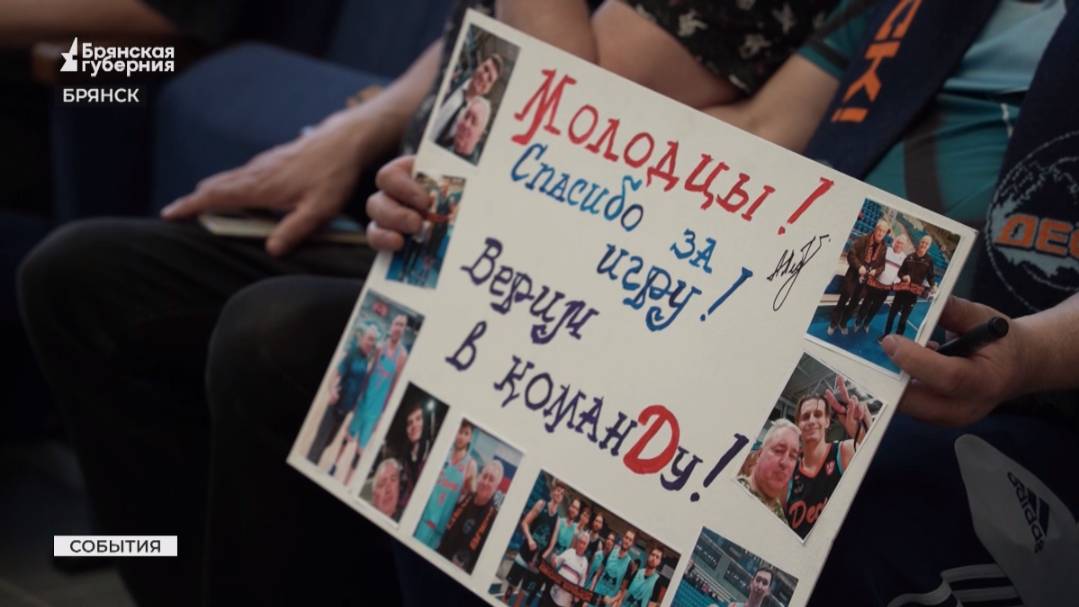 Брянская
Губерния
БРЯНСК
Молодцы!
Спасибо за
игру!
Верим
в команДу!
СК!
ДЕС
Des
adidas
СОБЫТИЯ